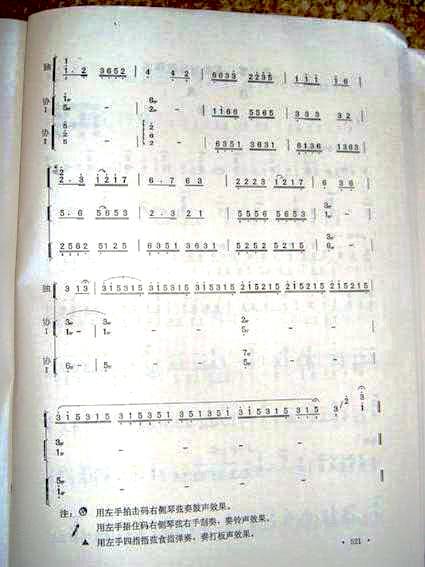 独 1 1·2 3652 | 4 4 2 | 6633 2235 | 1 1 1 1 6 |
协Ⅰ 1 5 - 6 2 - | 1166 5565 | 333 32 |
协Ⅰ 5 2 5 2 6 | 6351 3631 | 6136 1363 |
2·3 1217 | 6·7 63 | 2223 1217 | 6 36 |
5·6 5653 | 2·3 21 | 5556 5653 | 3 1 - |
2562 5125 | 6351 3631 | 5252 5215 | 3 6 - |
独 3 13 | 315315 315315 315315 215215 215215 215215
协Ⅰ 3 1 - | 3 1 - - - 2 5 - -
协Ⅰ 6 - | 5 - - 7 5 - -
315315 315351 351351 315315 315315 315 3 2 3 1
3 1 - - - - -
5 1 - - - - -
注: 用左手拍击码右侧琴弦奏鼓声效果。
用左手捂住码右侧琴弦右手刮奏,奏铃声效果。
▲ 用左手四指捂弦食指弹奏,奏打板声效果。
· 521 ·